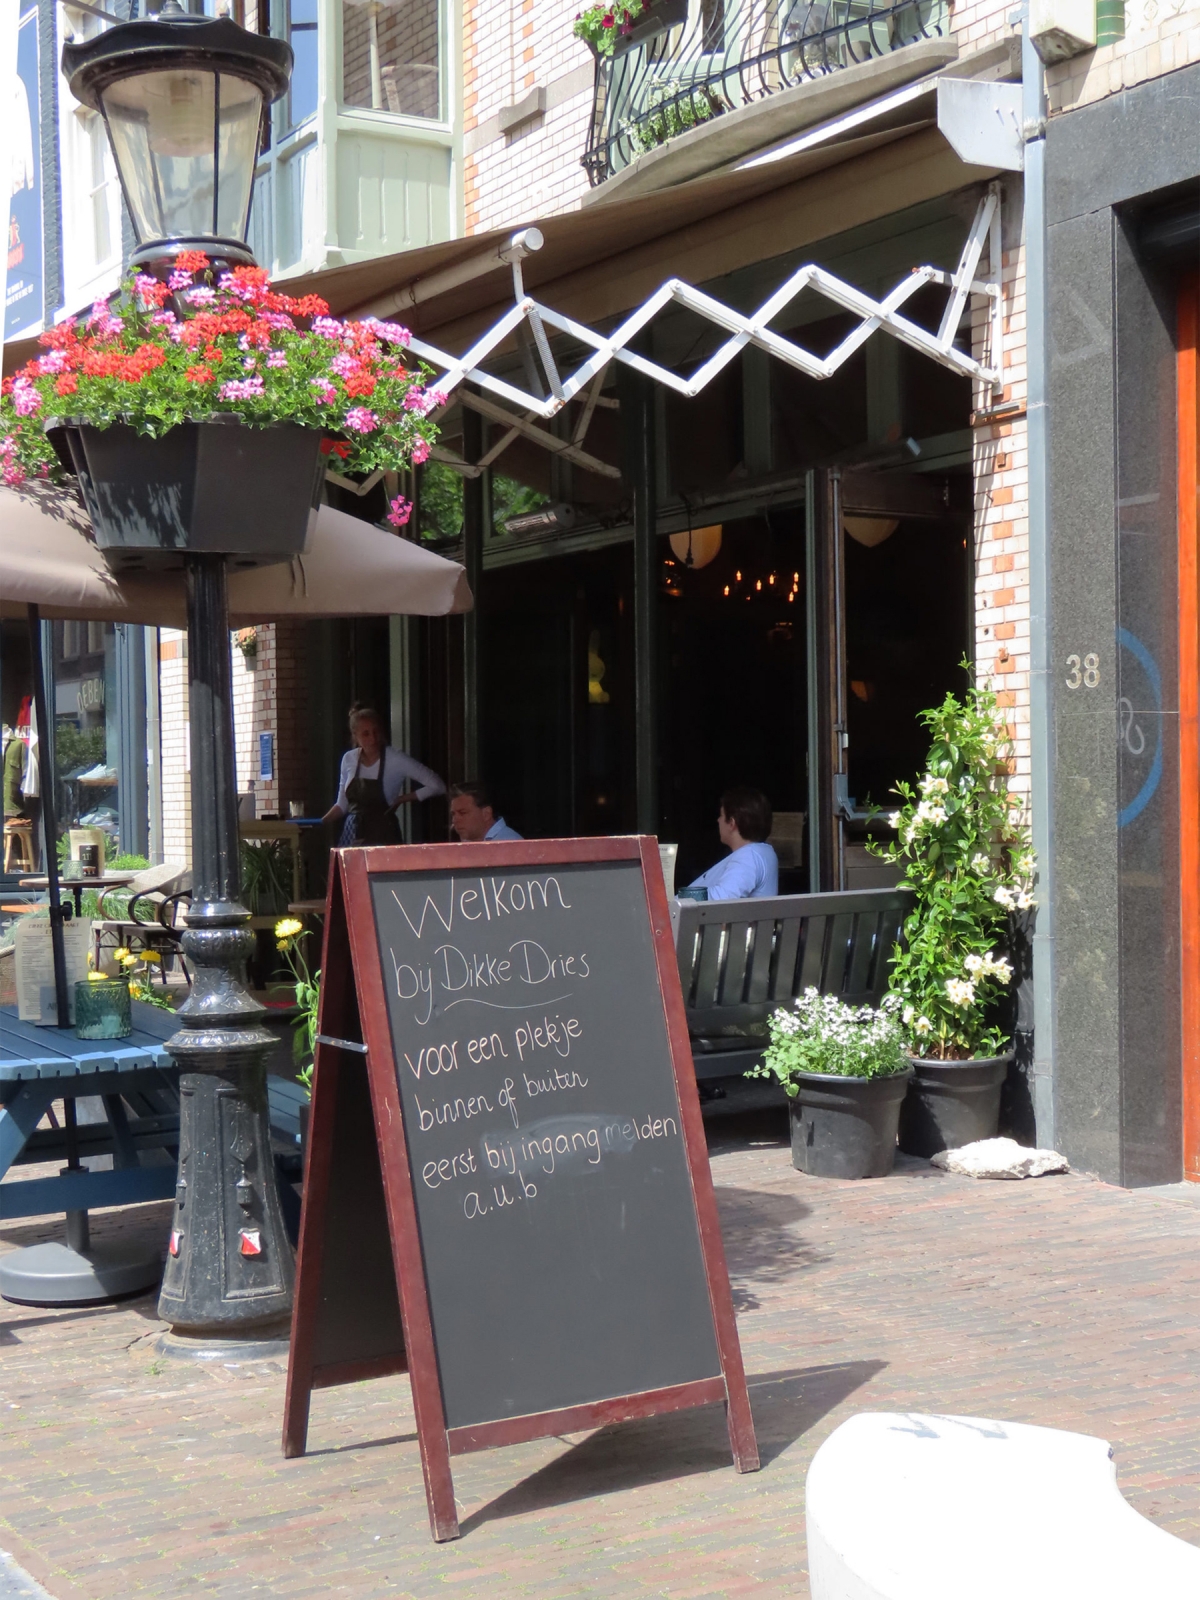 Welkom
bij Dikke Dries
voor een plekje
binnen of buiten
eerst bij ingang melden
a.u.b
38